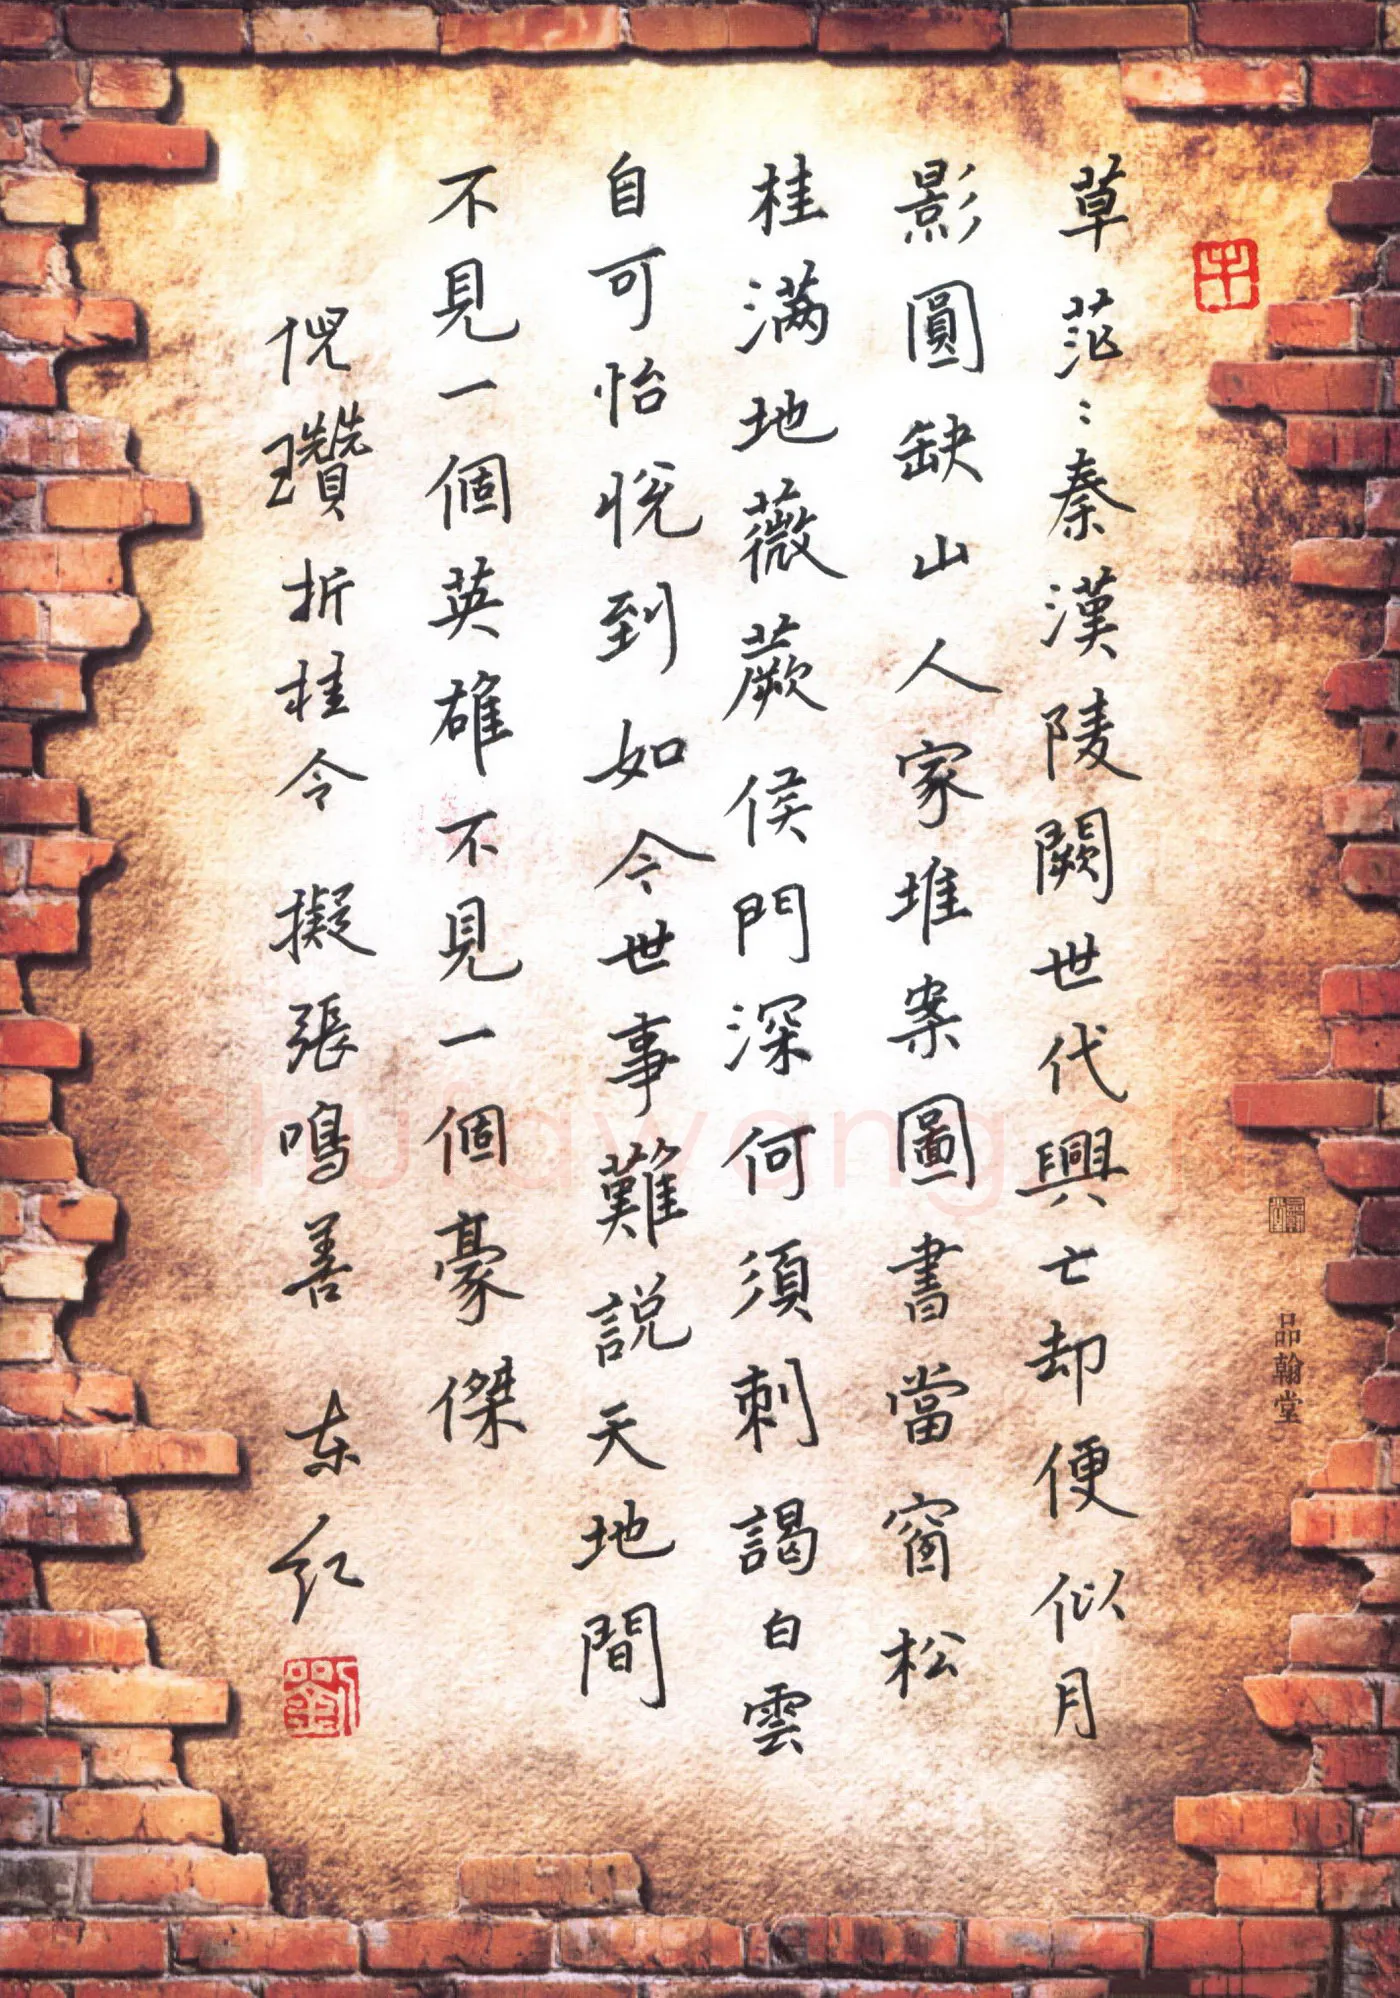 草茫〻秦漢陵闕世代興亡却便似月
影圓缺山人家堆案圖書當窗松
桂满地薇蕨侯門深何須刺謁白雲
自可怡悦到如今世事難説天地間
不見一個英雄不見一個豪傑
倪瓚折桂令 擬張鳴善 东红
劉
品翰堂
Shufawang.cn